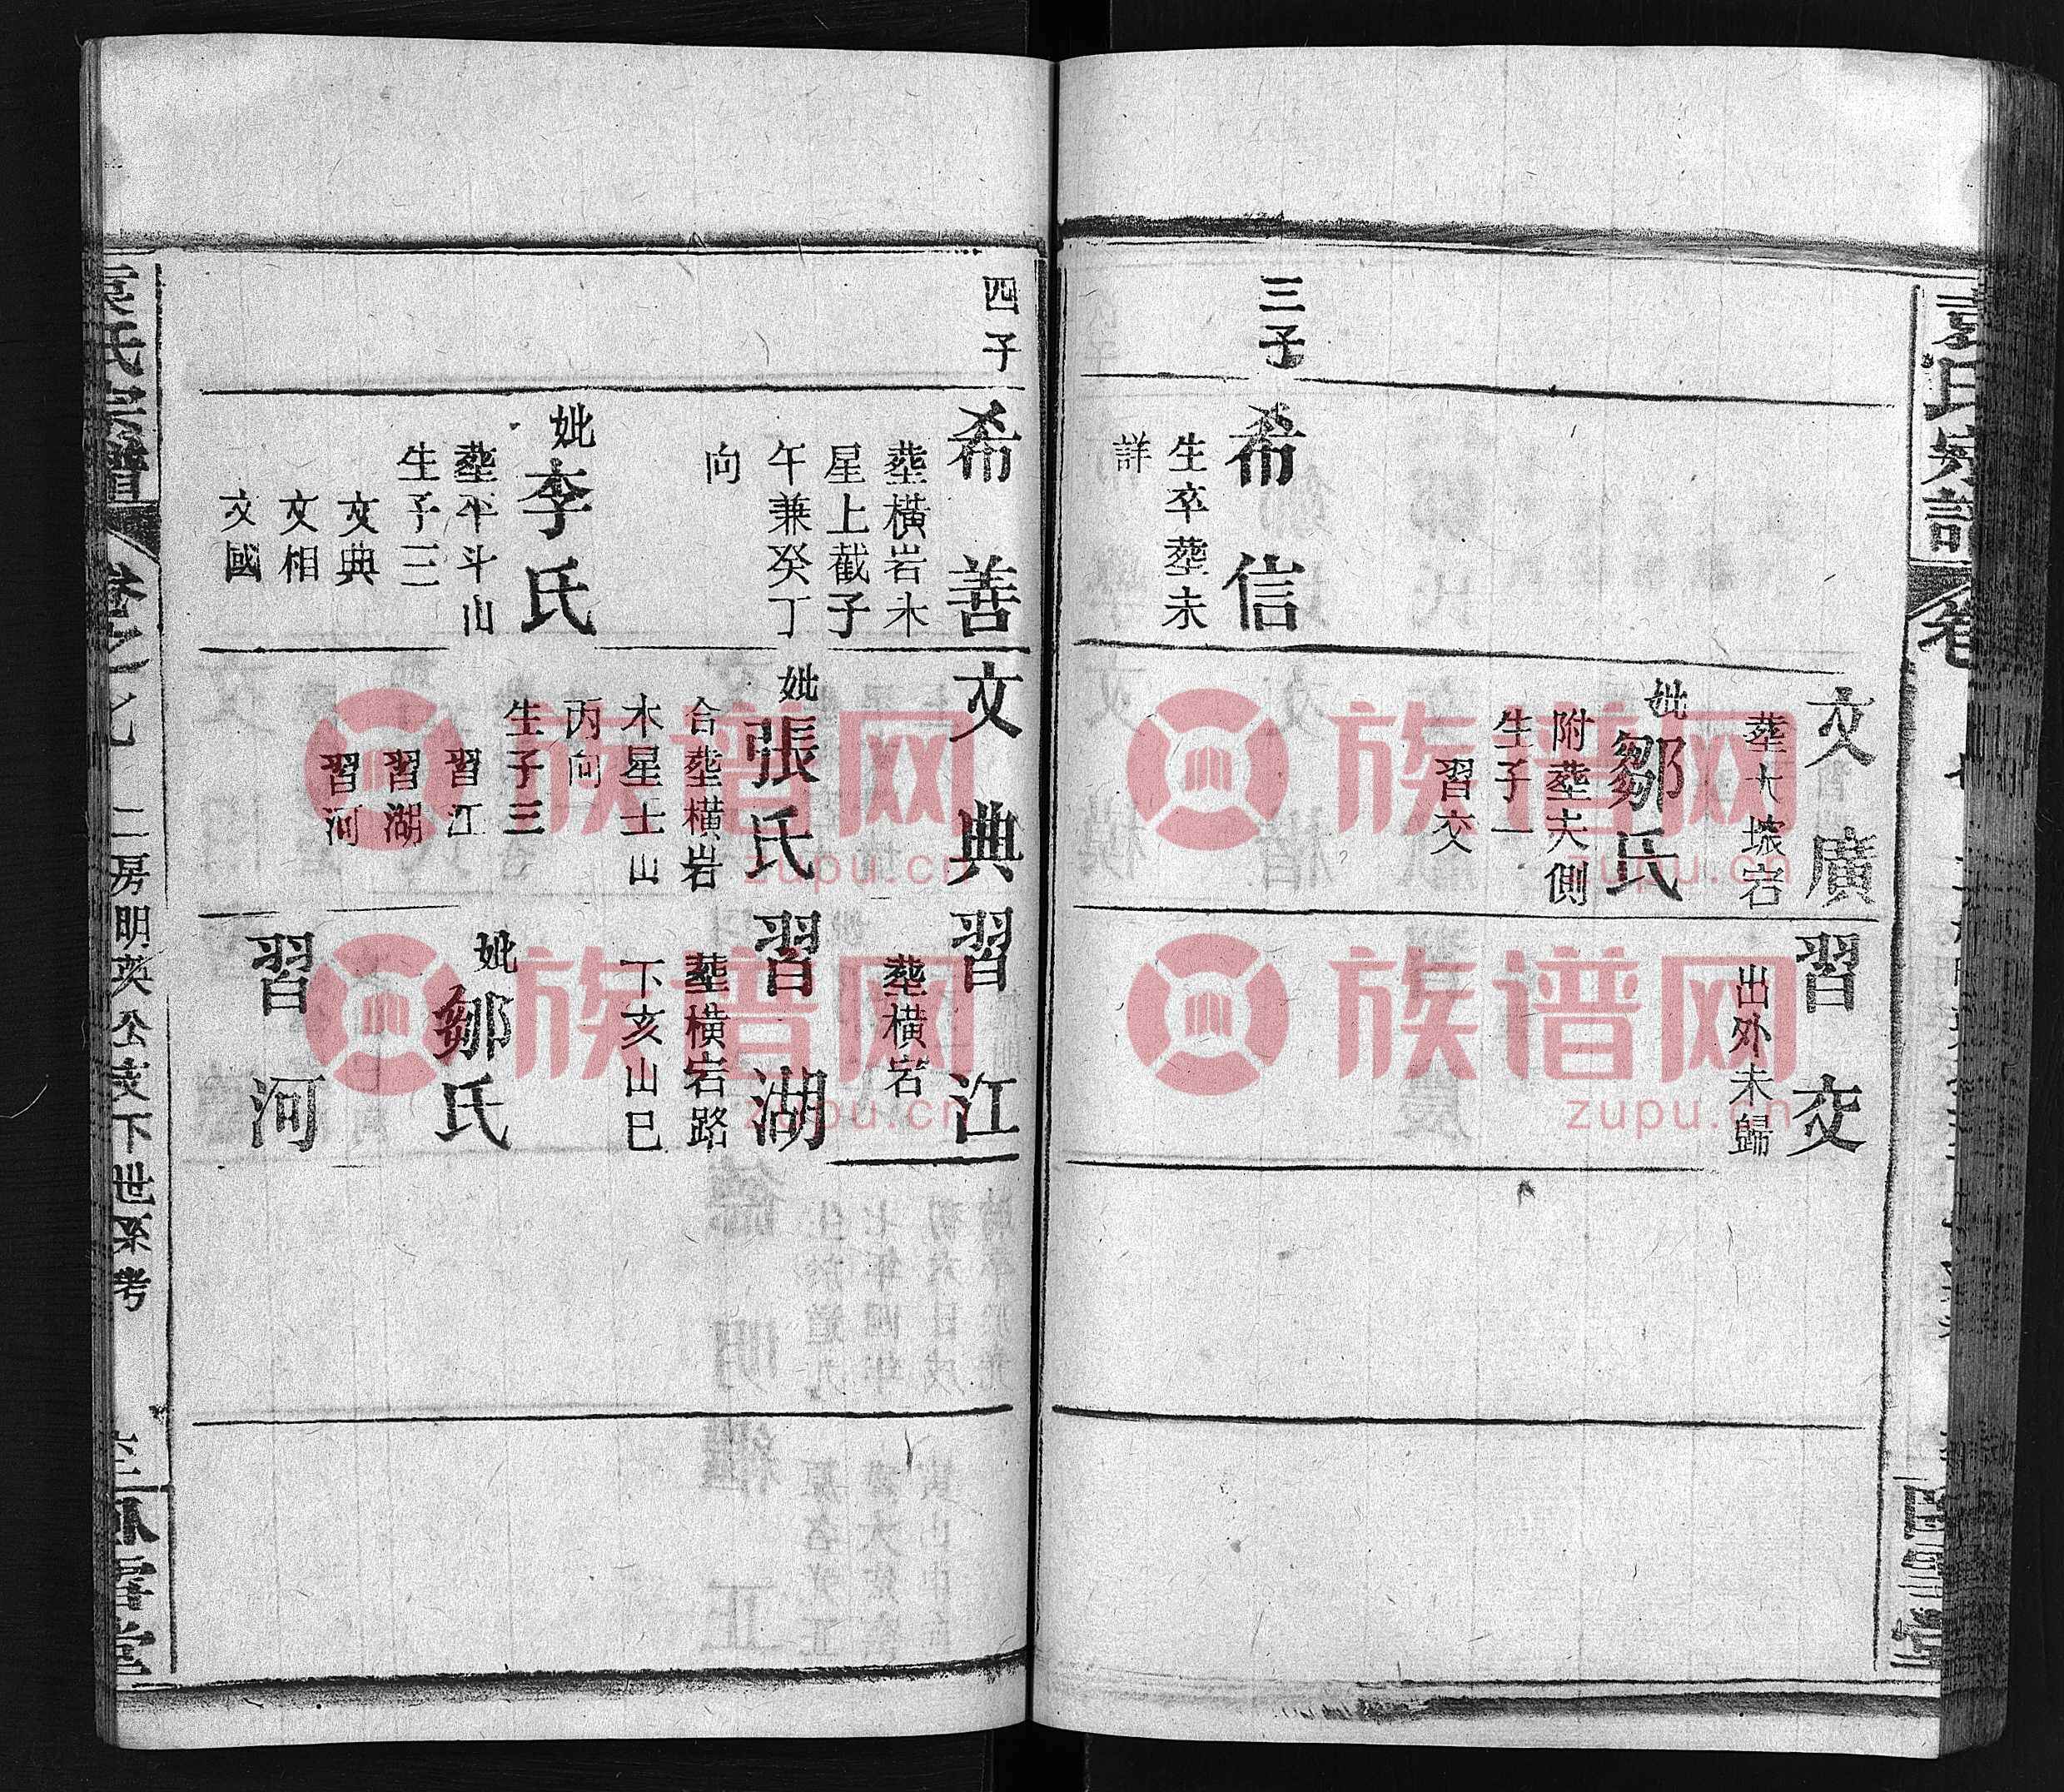 三子
希信
生卒塟未
詳
文廣
塟大塘宕
妣鄒氏
附塟夫側
生子一
習交
習交
出外未歸
四子
希善
塟橫岩木
星上截子
午兼癸丁
向
妣李氏
塟平斗山
生子三
文典
文相
文國
文典
妣張氏
合塟橫岩
木星士山
丙向
生子三
習江
習湖
習河
習江
塟橫宕
習湖
塟橫宕路
下亥山巳
妣鄒氏
習河
袁氏宗譜
卷之七
二房明英公支下世系考
族谱网
zupu.cn
族谱网
zupu.cn
族谱网
zupu.cn
族谱网
zupu.cn